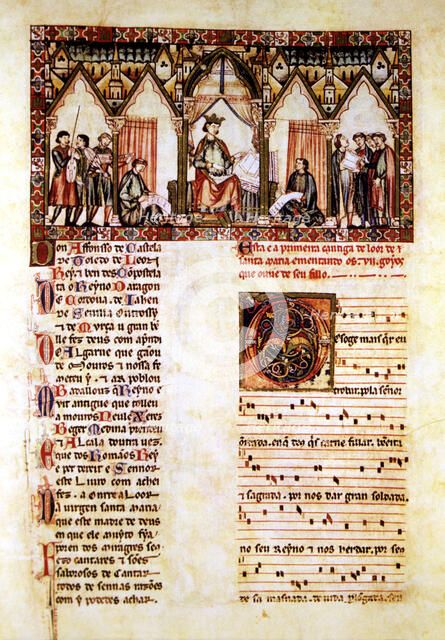 Don Affonso de Castela
de Toledo de Leon
Rey e ben des Cõpostela
ta o Reyno Daragon
De Cordova de Jahen
De Sevilla outrossy
E de Murça u gran ben
lle fez deus com apndi
Do Algarve que gãou
de mouros e nossa fe
meteu y e ar poblou
Badallouz que Reyno é
muit antigue que tolleu
a mouros Nevl e Xeres
Beger Medina prendeu
E Alcala doutra vez
que dos Romãos Rey
é per dereit e Sennor
este Livro com achei
fez a onrr e a Loor
Da virgen santa maria
que este madre de deus
en que ele muyto fia
poren dos miragres seus
fezo cantares e sões
saborosos de Cantar
todos de sennas razões
com y podedes achar.
Esta e a primeira cantiga de loor de
santa maria ementando os .vii. goyos
que ouve de seu fillo.
Des oge mais quer eu
trobar pola sennor
onrrada en que deus quis carne fillar beeyta
e sagrada por nos dar gran soldada
no seu Reyno e nos herdar por seus
de sa masnada de vida perlongada sen